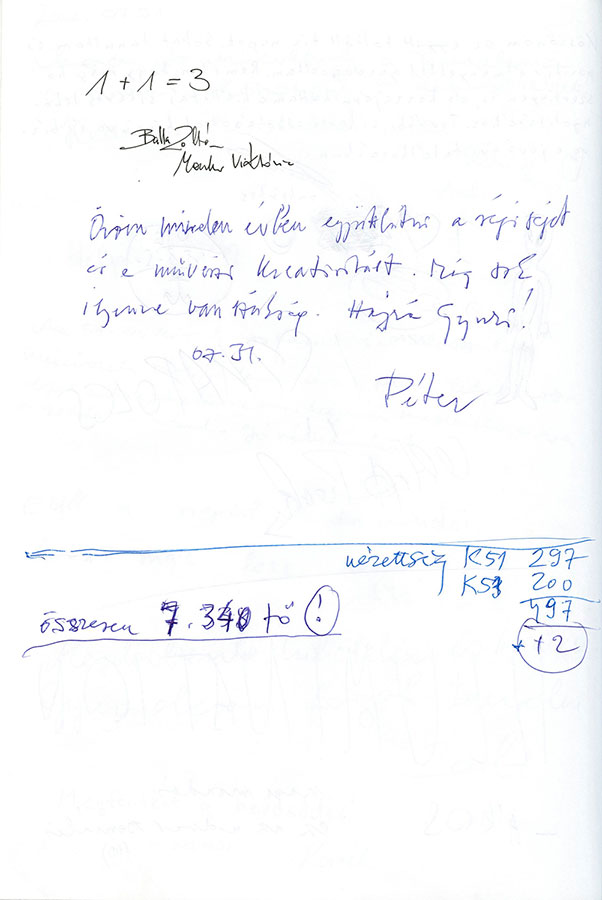 1 + 1 = 3
Balla Zoltán
Viktória
Öröm minden évben együttlátni a régiséget
és a művészi kreativitást. Még sok
ilyenre van szükség. Hajrá Gyuri!
07.31.
Péter
nézettség K51 297
K53 200
497
összesen 7.340 fő !
+2